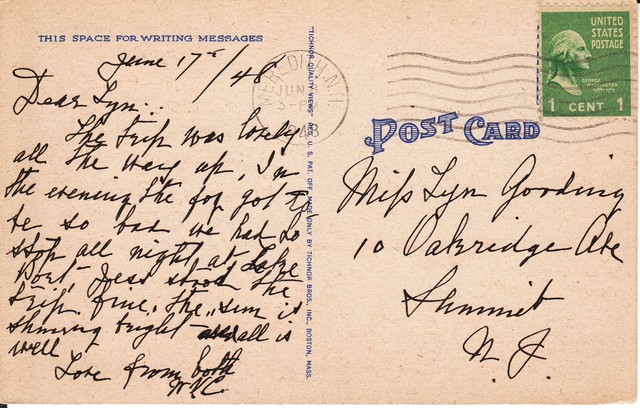 THIS SPACE FOR WRITING MESSAGES
June 17th/48
Dear Lyn..
The trip was lovely
all the way up, In
the evening the fog got to
be so bad we had to
stop all night at Lake
Port, Jess stood the
trip fine. The sun is
shining bright and all is
well
Love from both
"TICHNOR QUALITY VIEWS" REG. U. S. PAT. OFF. MADE ONLY BY TICHNOR BROS., INC., BOSTON, MASS.
MEREDITH, N.H.
JUN
3-P
48
UNITED
STATES
POSTAGE
GEORGE
WASHINGTON
1 CENT 1
POST CARD
Miss Lyn Gooding
10 Oakridge Ave
Summit
N. J.